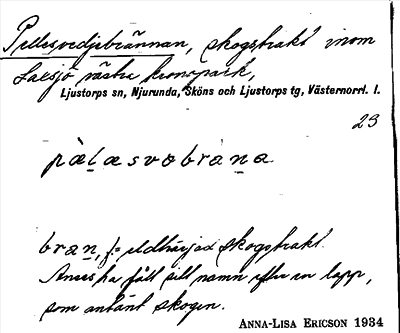 Pellesvedjebrännan, skogstrakt inom
Laxsjö västra kronopark,
Ljustorps sn, Njurunda, Sköns och Ljustorps tg, Västernorrl. l.
23
pàl̠æsvobràn̠a
bran̠, f= eldhärjad skogstrakt.
Anses ha fått sitt namn efter en lapp,
som antänt skogen.
ANNA-LISA ERICSON 1934